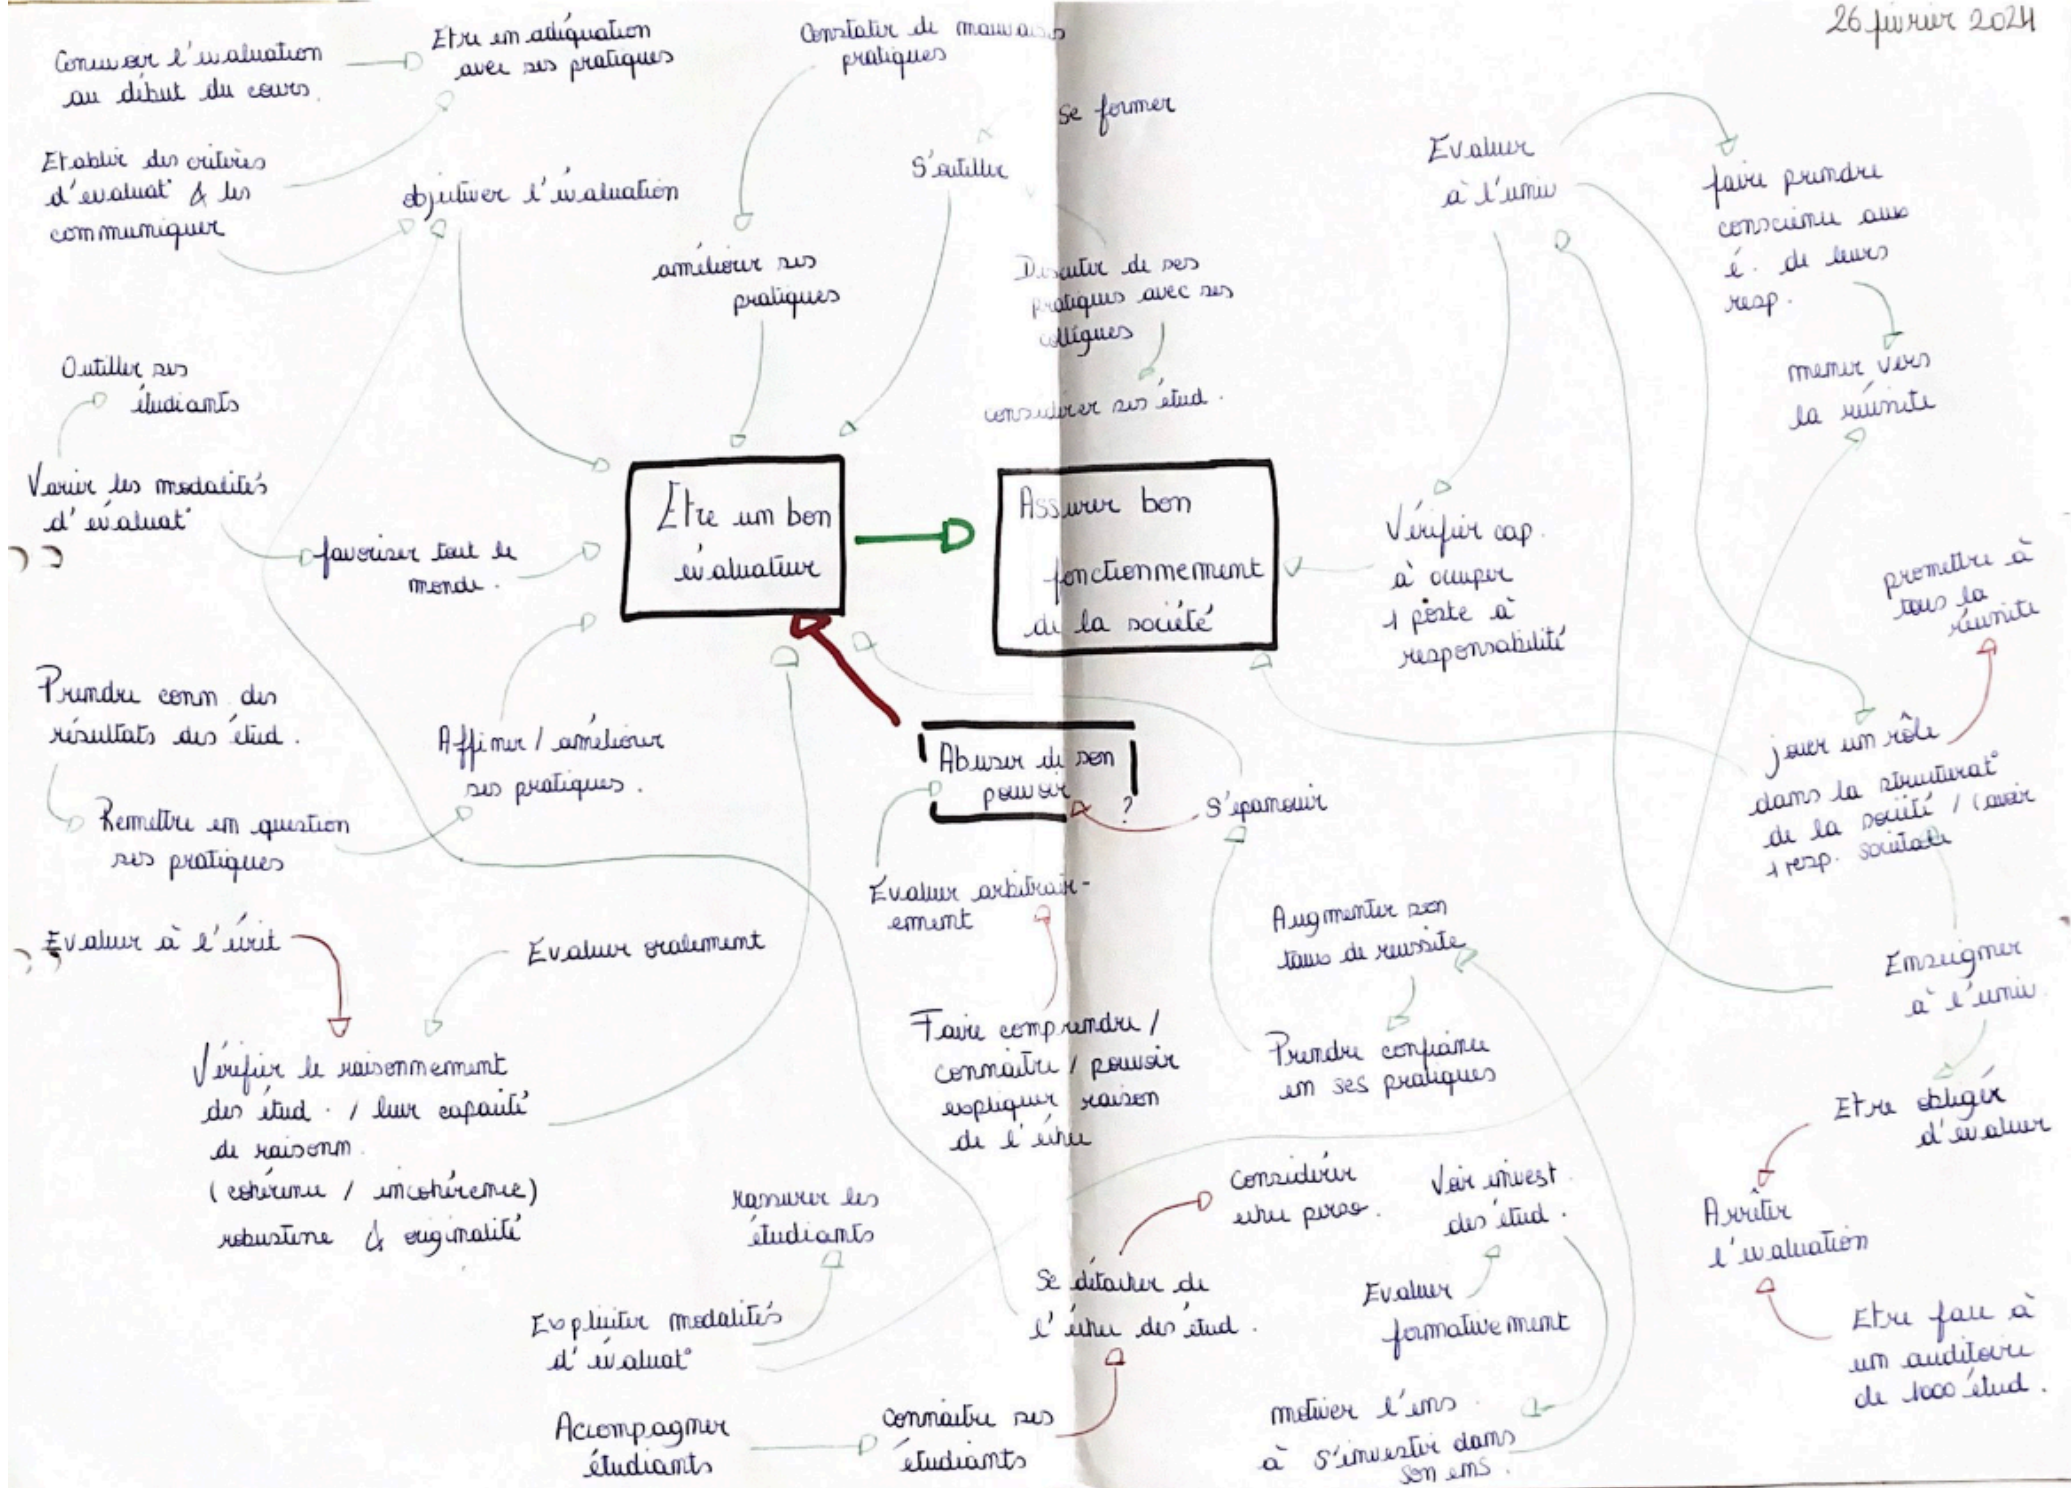 26 février 2024
Concevoir l'évaluation
au début du cours.
Etre en adéquation
avec ses pratiques
Constater de mauvaises
pratiques
se former
S'outiller
Etablir des critères
d'évaluat° & les
communiquer
objectiver l'évaluation
améliorer ses
pratiques
Discuter de ses
pratiques avec ses
collègues
considérer ses étud.
Evaluer
à l'univ
faire prendre
conscience aux
é. de leurs
resp.
mener vers
la réussite
Outiller ses
étudiants
Varier les modalités
d'évaluat°
favoriser tout le
monde.
Etre un bon
évaluateur
Assurer bon
fonctionnement
de la société
Vérifier cap.
à occuper
1 poste à
responsabilité
promettre à
tous la
réussite
Prendre conn. des
résultats des étud.
Affiner / améliorer
ses pratiques.
Remettre en question
ses pratiques
Abuser de son
pouvoir
?
S'épanouir
jouer un rôle
dans la structurat°
de la société / (avoir
1 resp. sociétale
Evaluer à l'écrit
Evaluer oralement
Evaluer arbitrair-
ement
Augmenter son
taux de réussite
Enseigner
à l'univ.
Vérifier le raisonnement
des étud. / leur capacité
de raisonn.
(cohérence / incohérence)
robustesse & originalité
Faire comprendre /
connaître / pouvoir
expliquer raison
de l'échec
Prendre confiance
en ses pratiques
Etre obligér
d'évaluer
rassurer les
étudiants
Considérer
échec perso.
Voir invest.
des étud.
Arrêter
l'évaluation
Expliciter modalités
d'évaluat°
Se détacher de
l'échec des étud.
Evaluer
formativement
Etre face à
un auditoire
de 1000 étud.
Accompagner
étudiants
connaître ses
étudiants
motiver l'ens.
à s'investir dans
son ens.